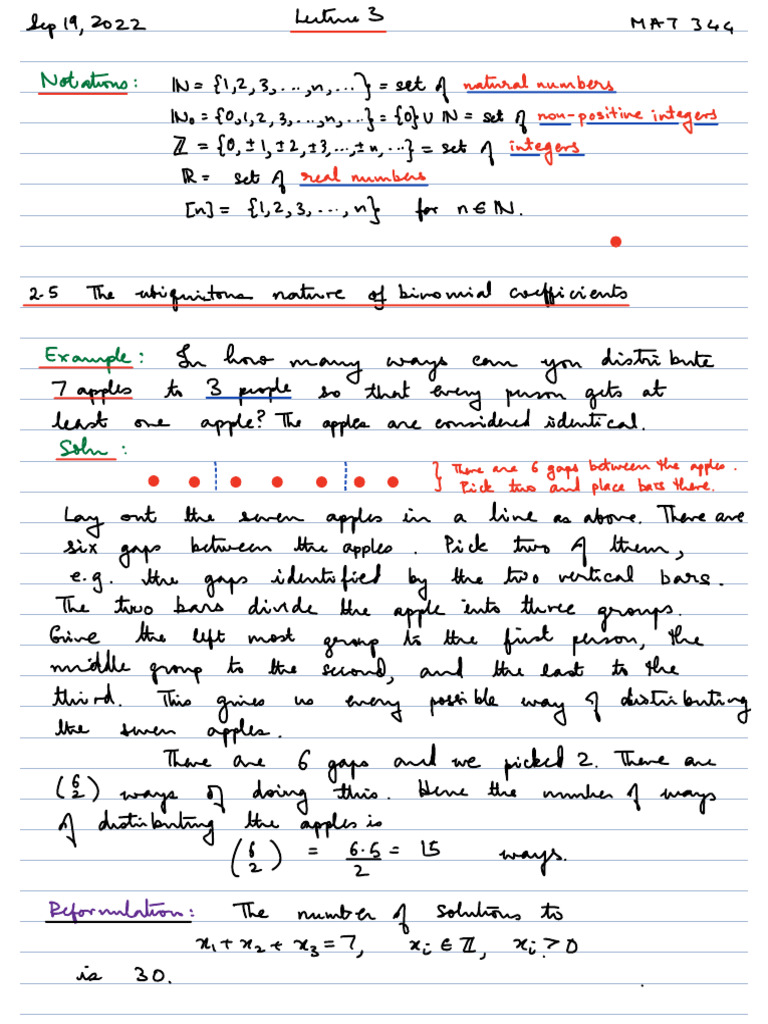 Sep 19, 2022 Lecture 3 MAT 344
Notations: ℕ = {1,2,3,...,n,...} = set of natural numbers
ℕ₀ = {0,1,2,3,...,n,...} = {0} ∪ ℕ = set of non-positive integers
ℤ = {0, ±1, ±2, ±3,...,±n,...} = set of integers
ℝ = set of real numbers
[n] = {1,2,3,...,n} for n ∈ ℕ.
2.5 The ubiquitous nature of binomial coefficients
Example: In how many ways can you distribute
7 apples to 3 people so that every person gets at
least one apple? The apples are considered identical.
Soln:
} There are 6 gaps between the apples.
Pick two and place bars there.
Lay out the seven apples in a line as above. There are
six gaps between the apples. Pick two of them,
e.g. the gaps identified by the two vertical bars.
The two bars divide the apple into three groups.
Give the left most group to the first person, the
middle group to the second, and the last to the
third. This gives us every possible way of distributing
the seven apples.
There are 6 gaps and we picked 2. There are
(6 2) ways of doing this. Hence the number of ways
of distributing the apples is
(6 2) = 6·5/2 = 15 ways.
Reformulation: The number of solutions to
x₁ + x₂ + x₃ = 7, xᵢ ∈ ℤ, xᵢ > 0
is 30.